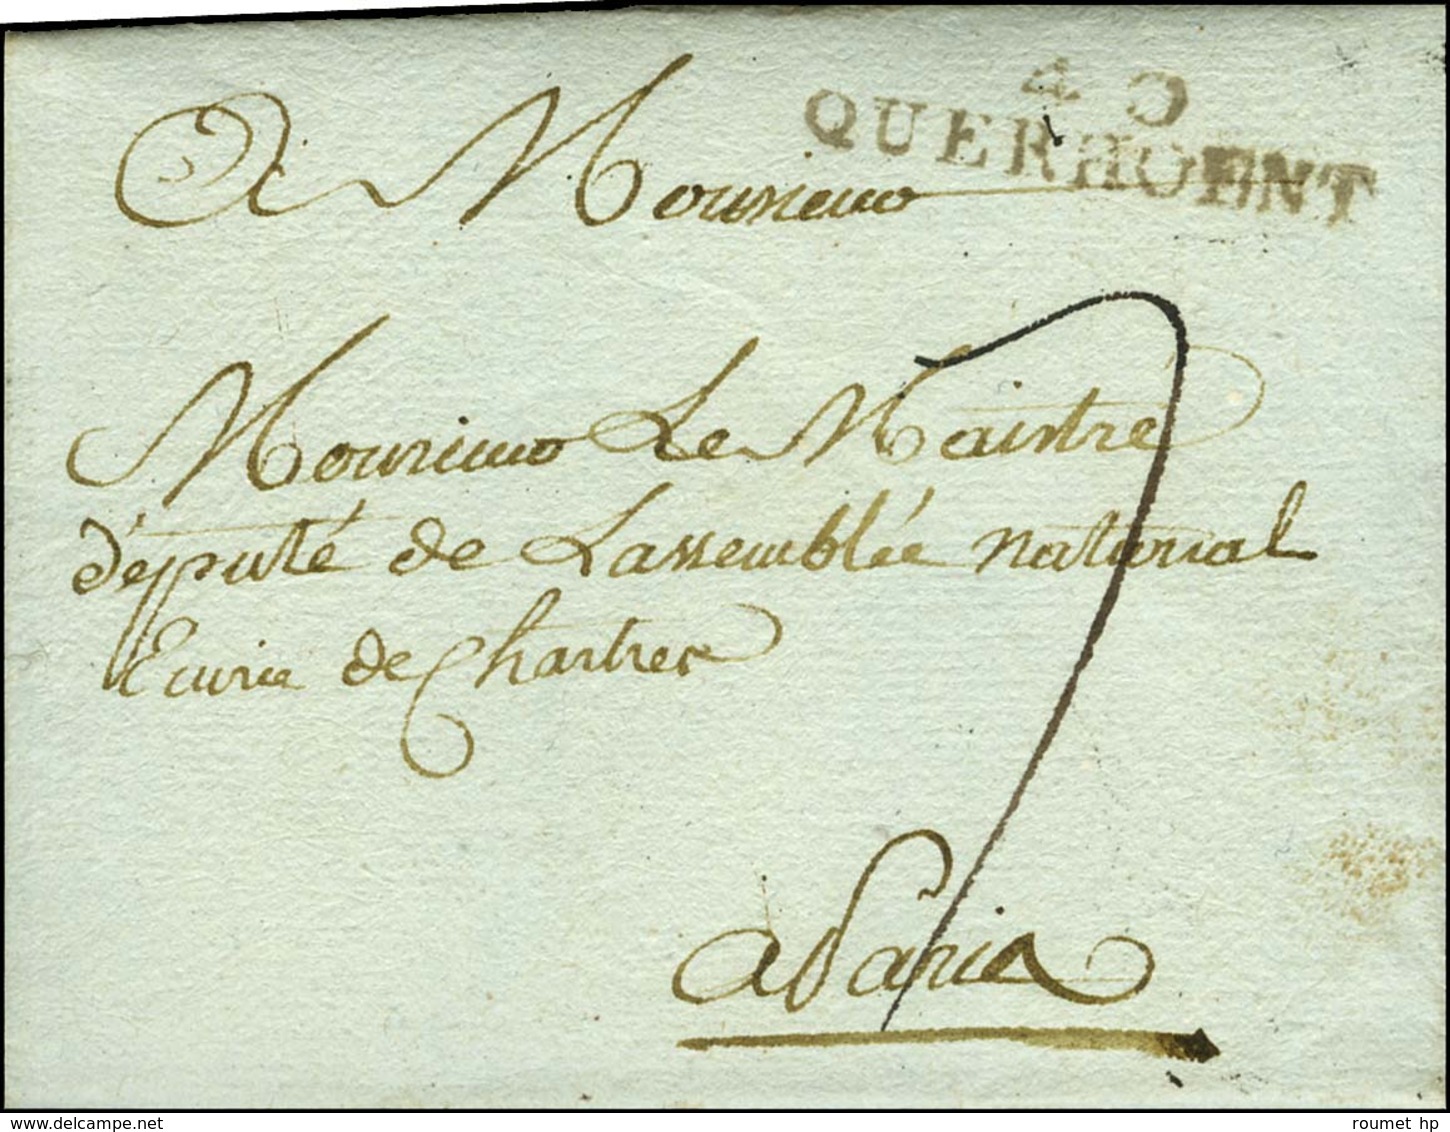 40
QUERHOENT
A Monsieur
7
Monsieur Le Maistre
député de Lassemblée national
Ecurie de Chartres
a Paris
www.delcampe.net
roumet hp